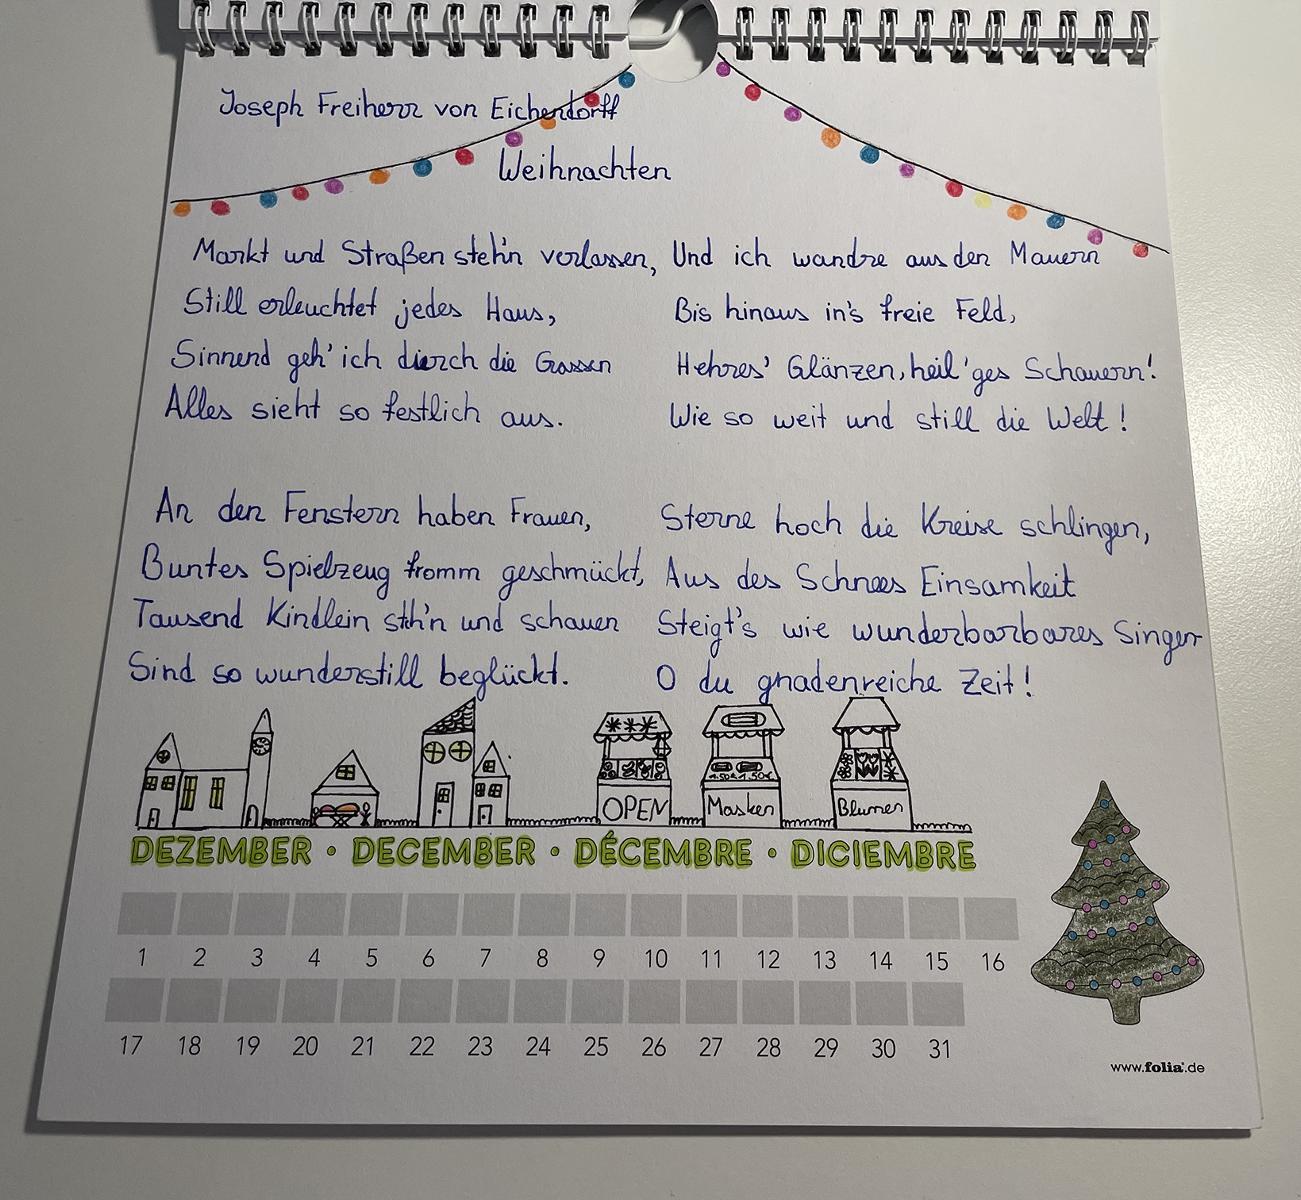 Joseph Freiherr von Eichendorff
Weihnachten
Markt und Straßen steh'n verlassen,
Still erleuchtet jedes Haus,
Sinnend geh' ich durch die Gassen
Alles sieht so festlich aus.
An den Fenstern haben Frauen,
Buntes Spielzeug fromm geschmückt,
Tausend Kindlein steh'n und schauen
Sind so wunderstill beglückt.
Und ich wandre aus den Mauern
Bis hinaus in's freie Feld,
Hehres' Glänzen, heil'ges Schauern!
Wie so weit und still die Welt!
Sterne hoch die Kreise schlingen,
Aus des Schnees Einsamkeit
Steigt's wie wunderbarbares Singen
O du gnadenreiche Zeit!
1.50€ 1.50€
OPEN
Masken
Blumen
DEZEMBER • DECEMBER • DÉCEMBRE • DICIEMBRE
1 2 3 4 5 6 7 8 9 10 11 12 13 14 15 16
17 18 19 20 21 22 23 24 25 26 27 28 29 30 31
www.folia.de